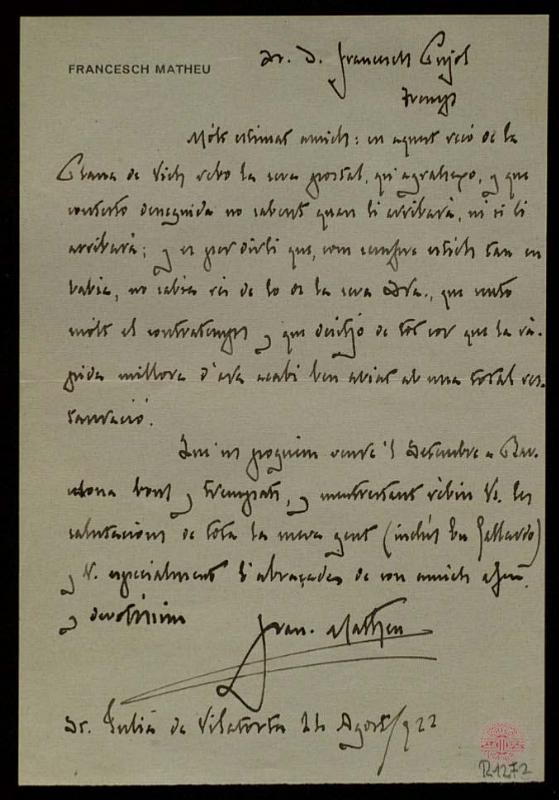 FRANCESCH MATHEU
Sr. D. Francesch Pujol
Molt estimat amich: en aquest recó de la
Plana de Vich rebo la seva postal, qu'agrahexo, y que
contesto deseguida no sabent quan li arribará, ni si li
arribará; y es per dirli que, com sempre estich tan en
babia, no sabia res de lo de la seva Sra., que sento
molt el contratemps y que desitjo de tot cor que la rá-
pida millora d'ara acabi ben aviat ab una total res-
tauració.
Que'ns poguém veure 'l Setembre a Bar-
celona bons y trempats, y mentrestant rebin Vs. les
salutacions de tota la meva gent (inclús En Gallardo)
y V. especialment l'abraçada de son amich afm.
y devotíssim
Fran. Matheu
St. Juliá de Vilatorta 24 Agost/922
R.1272